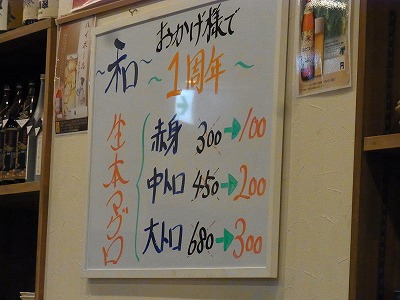 おかげ様で
～和～
1周年～
生本マグロ
赤身 300→100
中トロ 450→200
大トロ 680→300